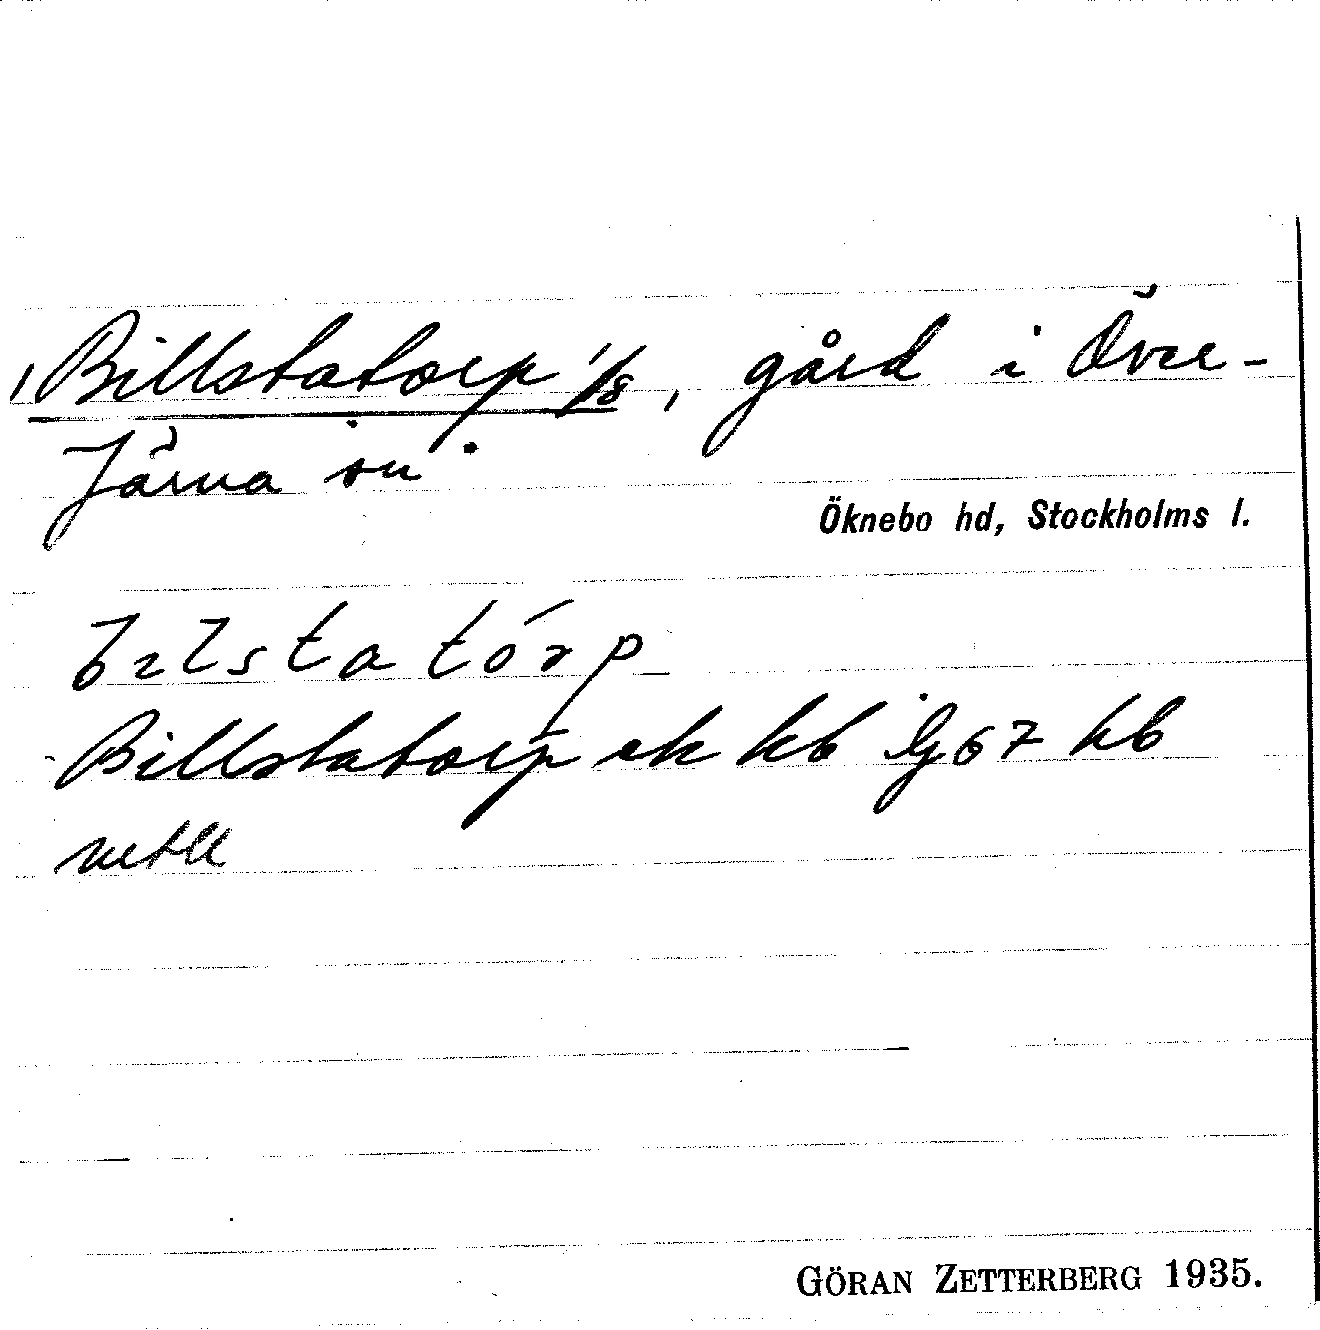 Billstatorp 1/8, gård i Över-
Järna sn
Öknebo hd, Stockholms l.
bılstatórp
Billstatorp ek kb Jg 67 kb
GÖRAN ZETTERBERG 1935.